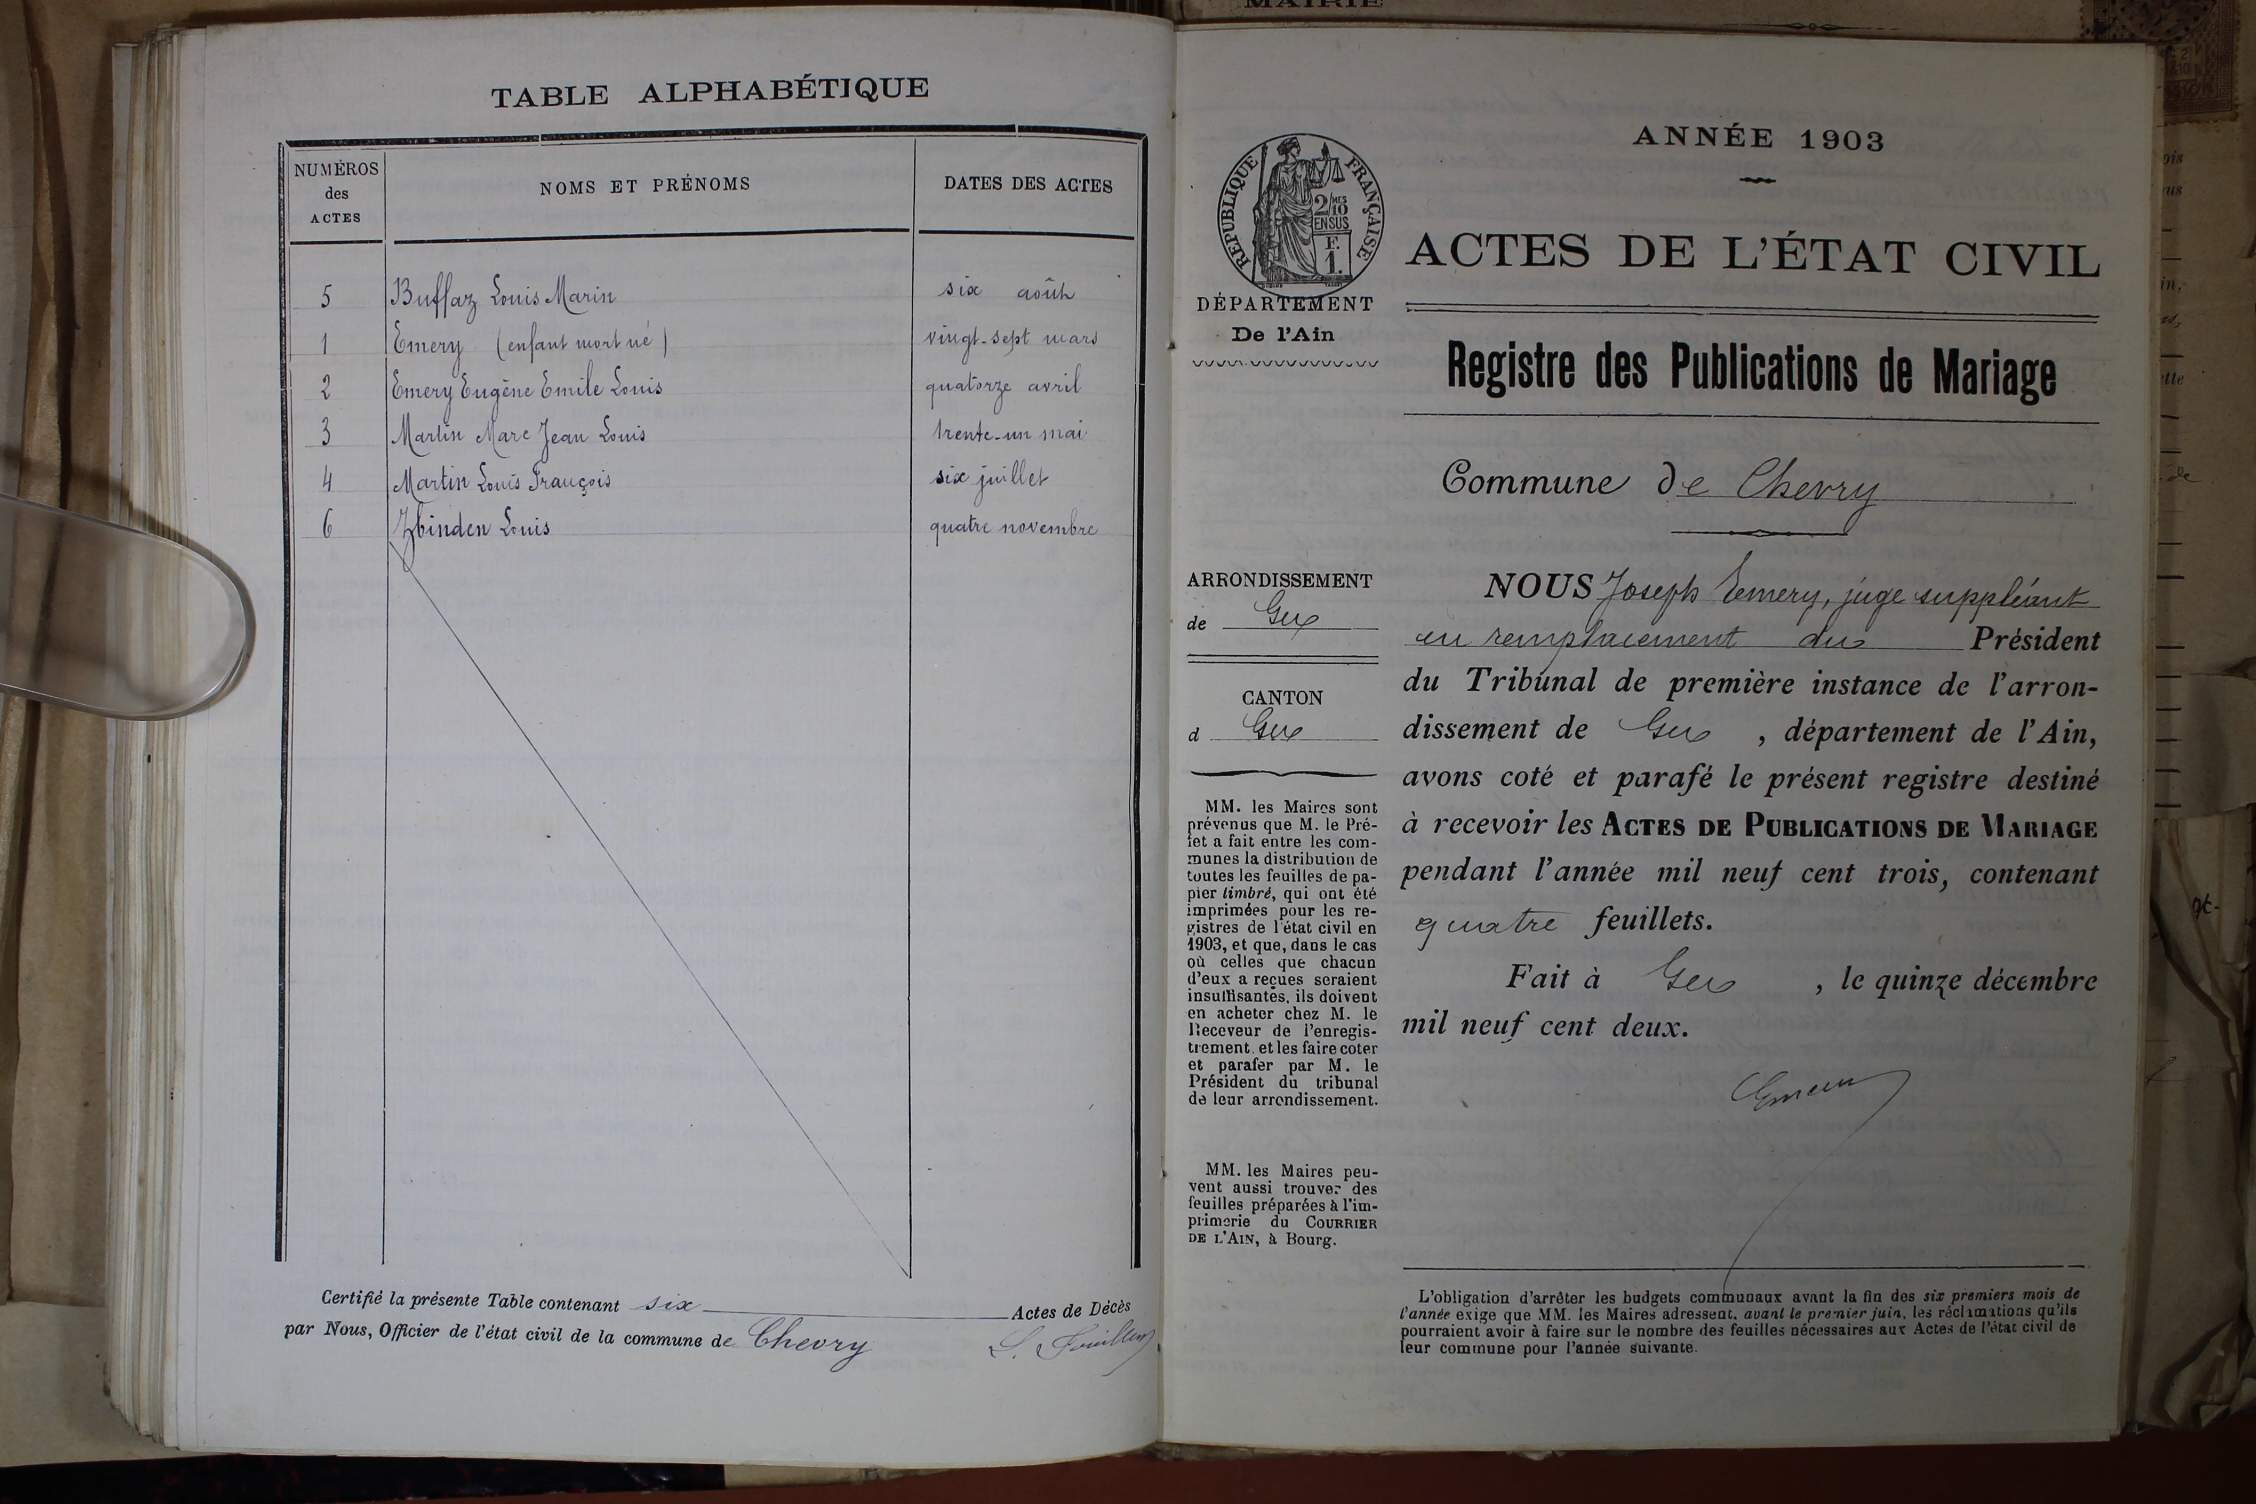 TABLE ALPHABÉTIQUE
NUMÉROS
des
ACTES
NOMS ET PRÉNOMS
DATES DES ACTES
5 Buffaz Louis Marin six août
1 Emery (enfant mort né) vingt-sept mars
2 Emery Eugène Emile Louis quatorze avril
3 Martin Marc Jean Louis trente-un mai
4 Martin Louis François six juillet
6 Zbinden Louis quatre novembre
Certifié la présente Table contenant six Actes de Décès
par Nous, Officier de l'état civil de la commune de Chevry
MAIRIE
RÉPUBLIQUE FRANÇAISE
2/MES 10
EN SUS
F.
1.
DÉPARTEMENT
De l'Ain
ARRONDISSEMENT
de Gex
CANTON
d Gex
MM. les Maires sont
prévenus que M. le Pré-
fet a fait entre les com-
munes la distribution de
toutes les feuilles de pa-
pier timbré, qui ont été
imprimées pour les re-
gistres de l'état civil en
1903, et que, dans le cas
où celles que chacun
d'eux a reçues seraient
insuffisantes, ils doivent
en acheter chez M. le
Receveur de l'enregis-
trement, et les faire coter
et parafer par M. le
Président du tribunal
de leur arrondissement.
MM. les Maires peu-
vent aussi trouver des
feuilles préparées à l'im-
primerie du COURRIER
DE L'AIN, à Bourg.
ANNÉE 1903
ACTES DE L'ÉTAT CIVIL
Registre des Publications de Mariage
Commune de Chevry
NOUS Joseph Emery, juge suppléant
en remplacement du Président
du Tribunal de première instance de l'arron-
dissement de Gex , département de l'Ain,
avons coté et parafé le présent registre destiné
à recevoir les ACTES DE PUBLICATIONS DE MARIAGE
pendant l'année mil neuf cent trois, contenant
quatre feuillets.
Fait à Gex , le quinze décembre
mil neuf cent deux.
Emery
L'obligation d'arrêter les budgets communaux avant la fin des six premiers mois de
l'année exige que MM. les Maires adressent, avant le premier juin, les réclamations qu'ils
pourraient avoir à faire sur le nombre des feuilles nécessaires aux Actes de l'état civil de
leur commune pour l'année suivante.